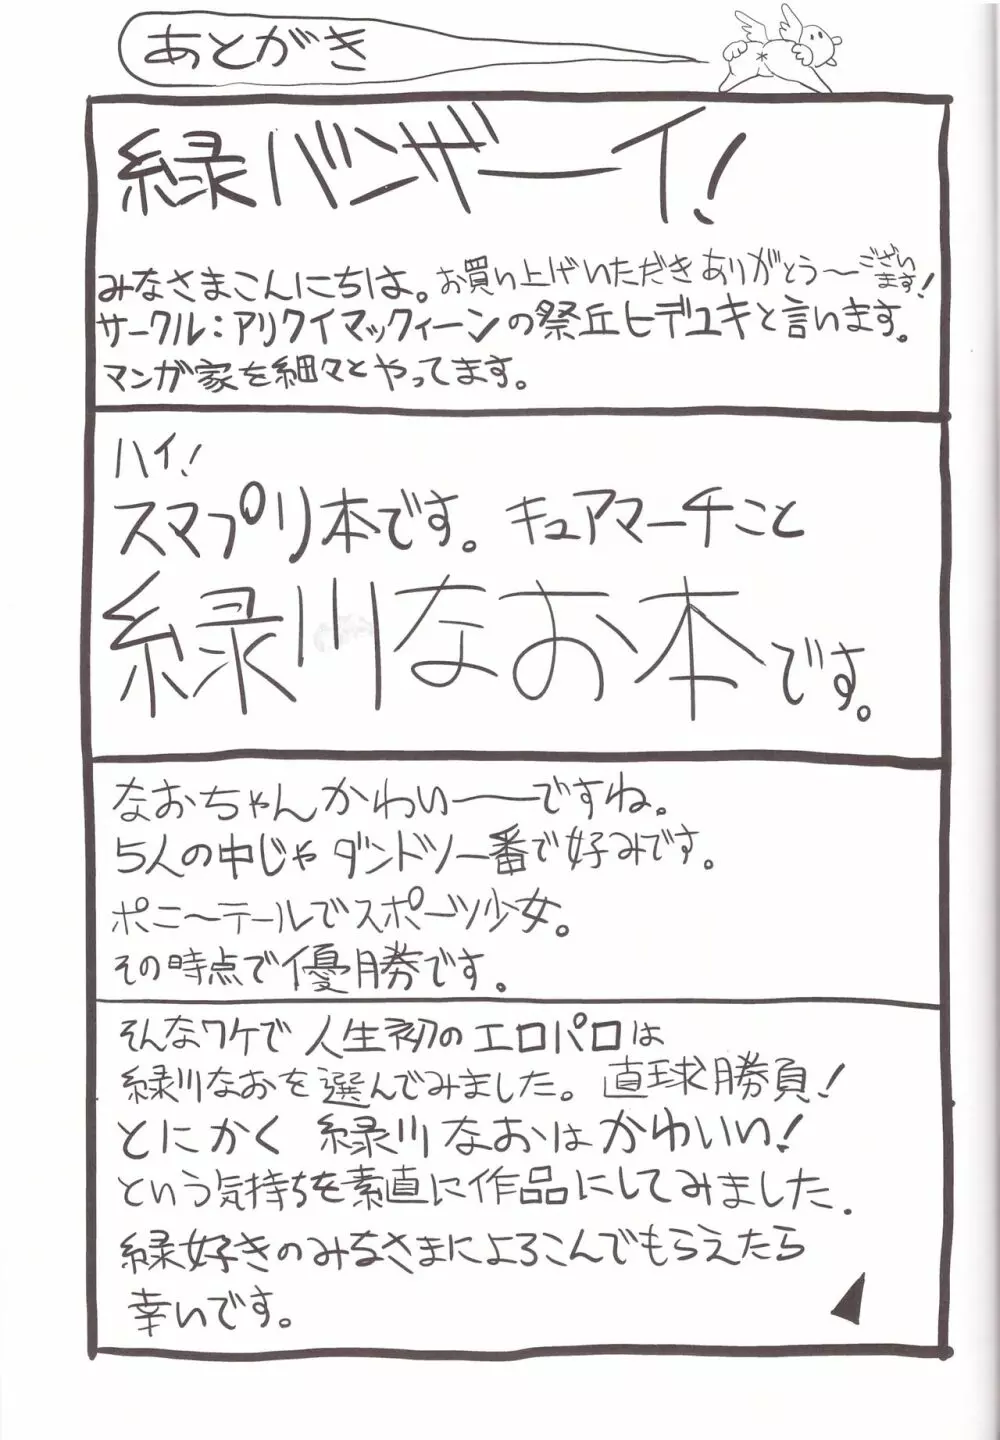 あとがき
緑バンザーイ!
みなさまこんにちは。お買い上げいただきありがとう〜ございます!
サークル:アリクイマックィーンの祭丘ヒデユキと言います。
マンガ家を細々とやってます。
ハイ!
スマプリ本です。キュアマーチこと
緑川なお本です。
なおちゃんかわいーですね。
5人の中じゃダンドツ一番で好みです。
ポニ〜テールでスポーツ少女。
その時点で優勝です。
そんなワケで人生初のエロパロは
緑川なおを選んでみました。直球勝負!
とにかく緑川なおはかわいい!
という気持ちを素直に作品にしてみました.
緑好きのみなさまによろこんでもらえたら
幸いです。